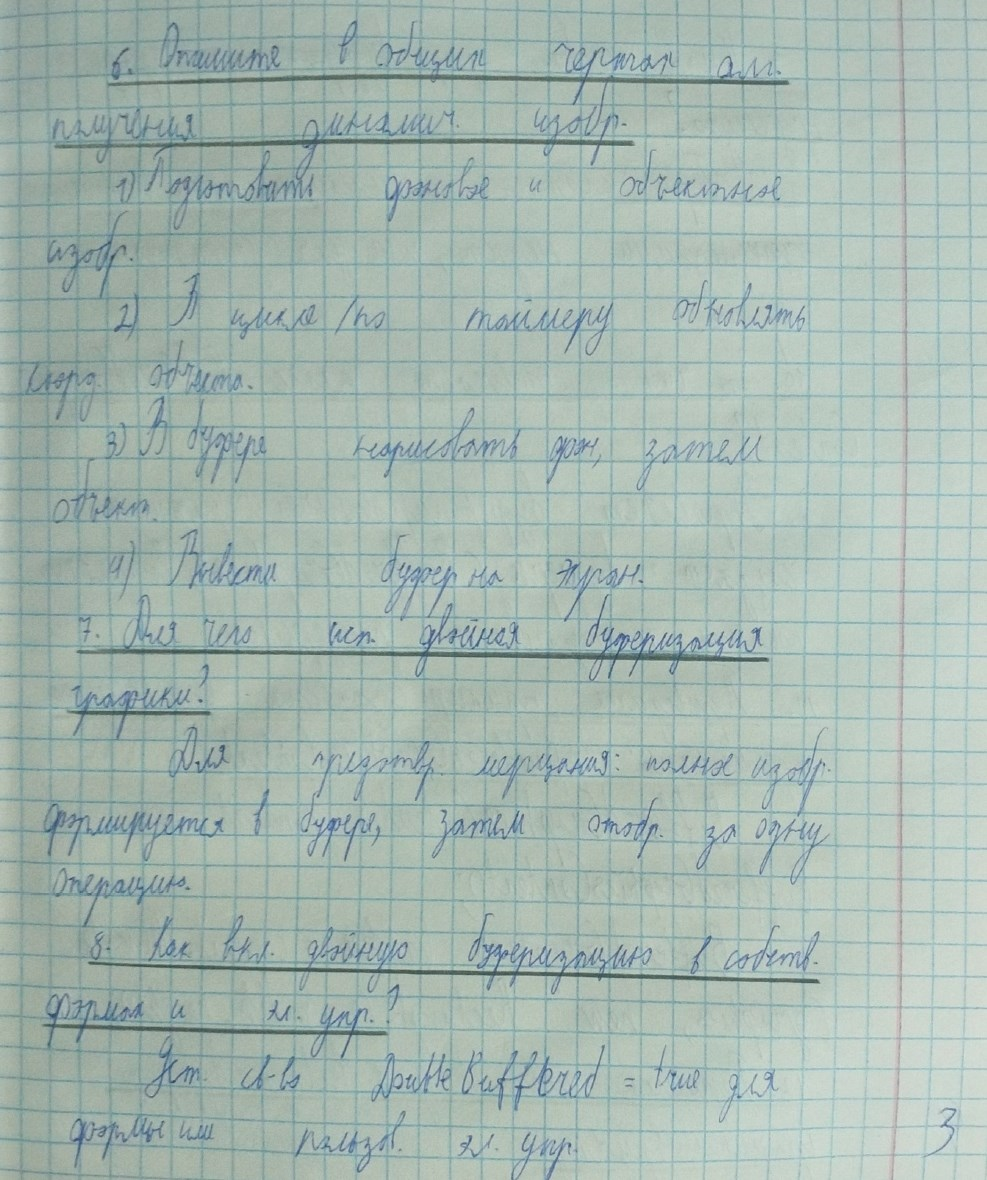 6. Опишите в общих чертах алг.
получения динамич. изобр.
1) Подготовить фоновое и объектное
изобр.
2) В цикле/по таймеру обновлять
коорд. объекта.
3) В буфере нарисовать фон, затем
объект.
4) Вывести буфер на экран.
7. Для чего исп. двойная буферизация
графики?
Для предотвр. мерцания: полное изобр.
формируется в буфере, затем отобр. за одну
операцию.
8. Как вкл. двойную буферизацию в собств.
формах и эл. упр.?
Уст. св-во DoubleBuffered = true для
формы или пользов. эл. упр.
3